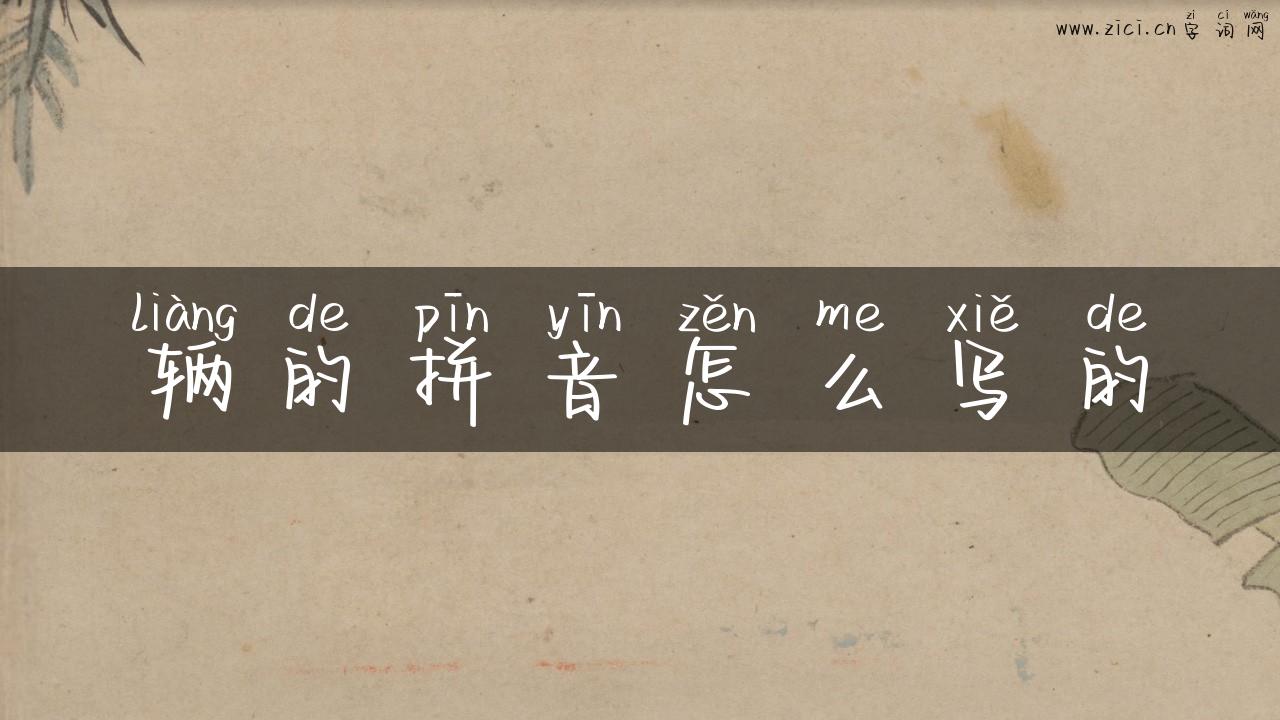 zì cí wǎng
www.zici.cn 字词网
liàng de pīn yīn zěn me xiě de
辆的拼音怎么写的